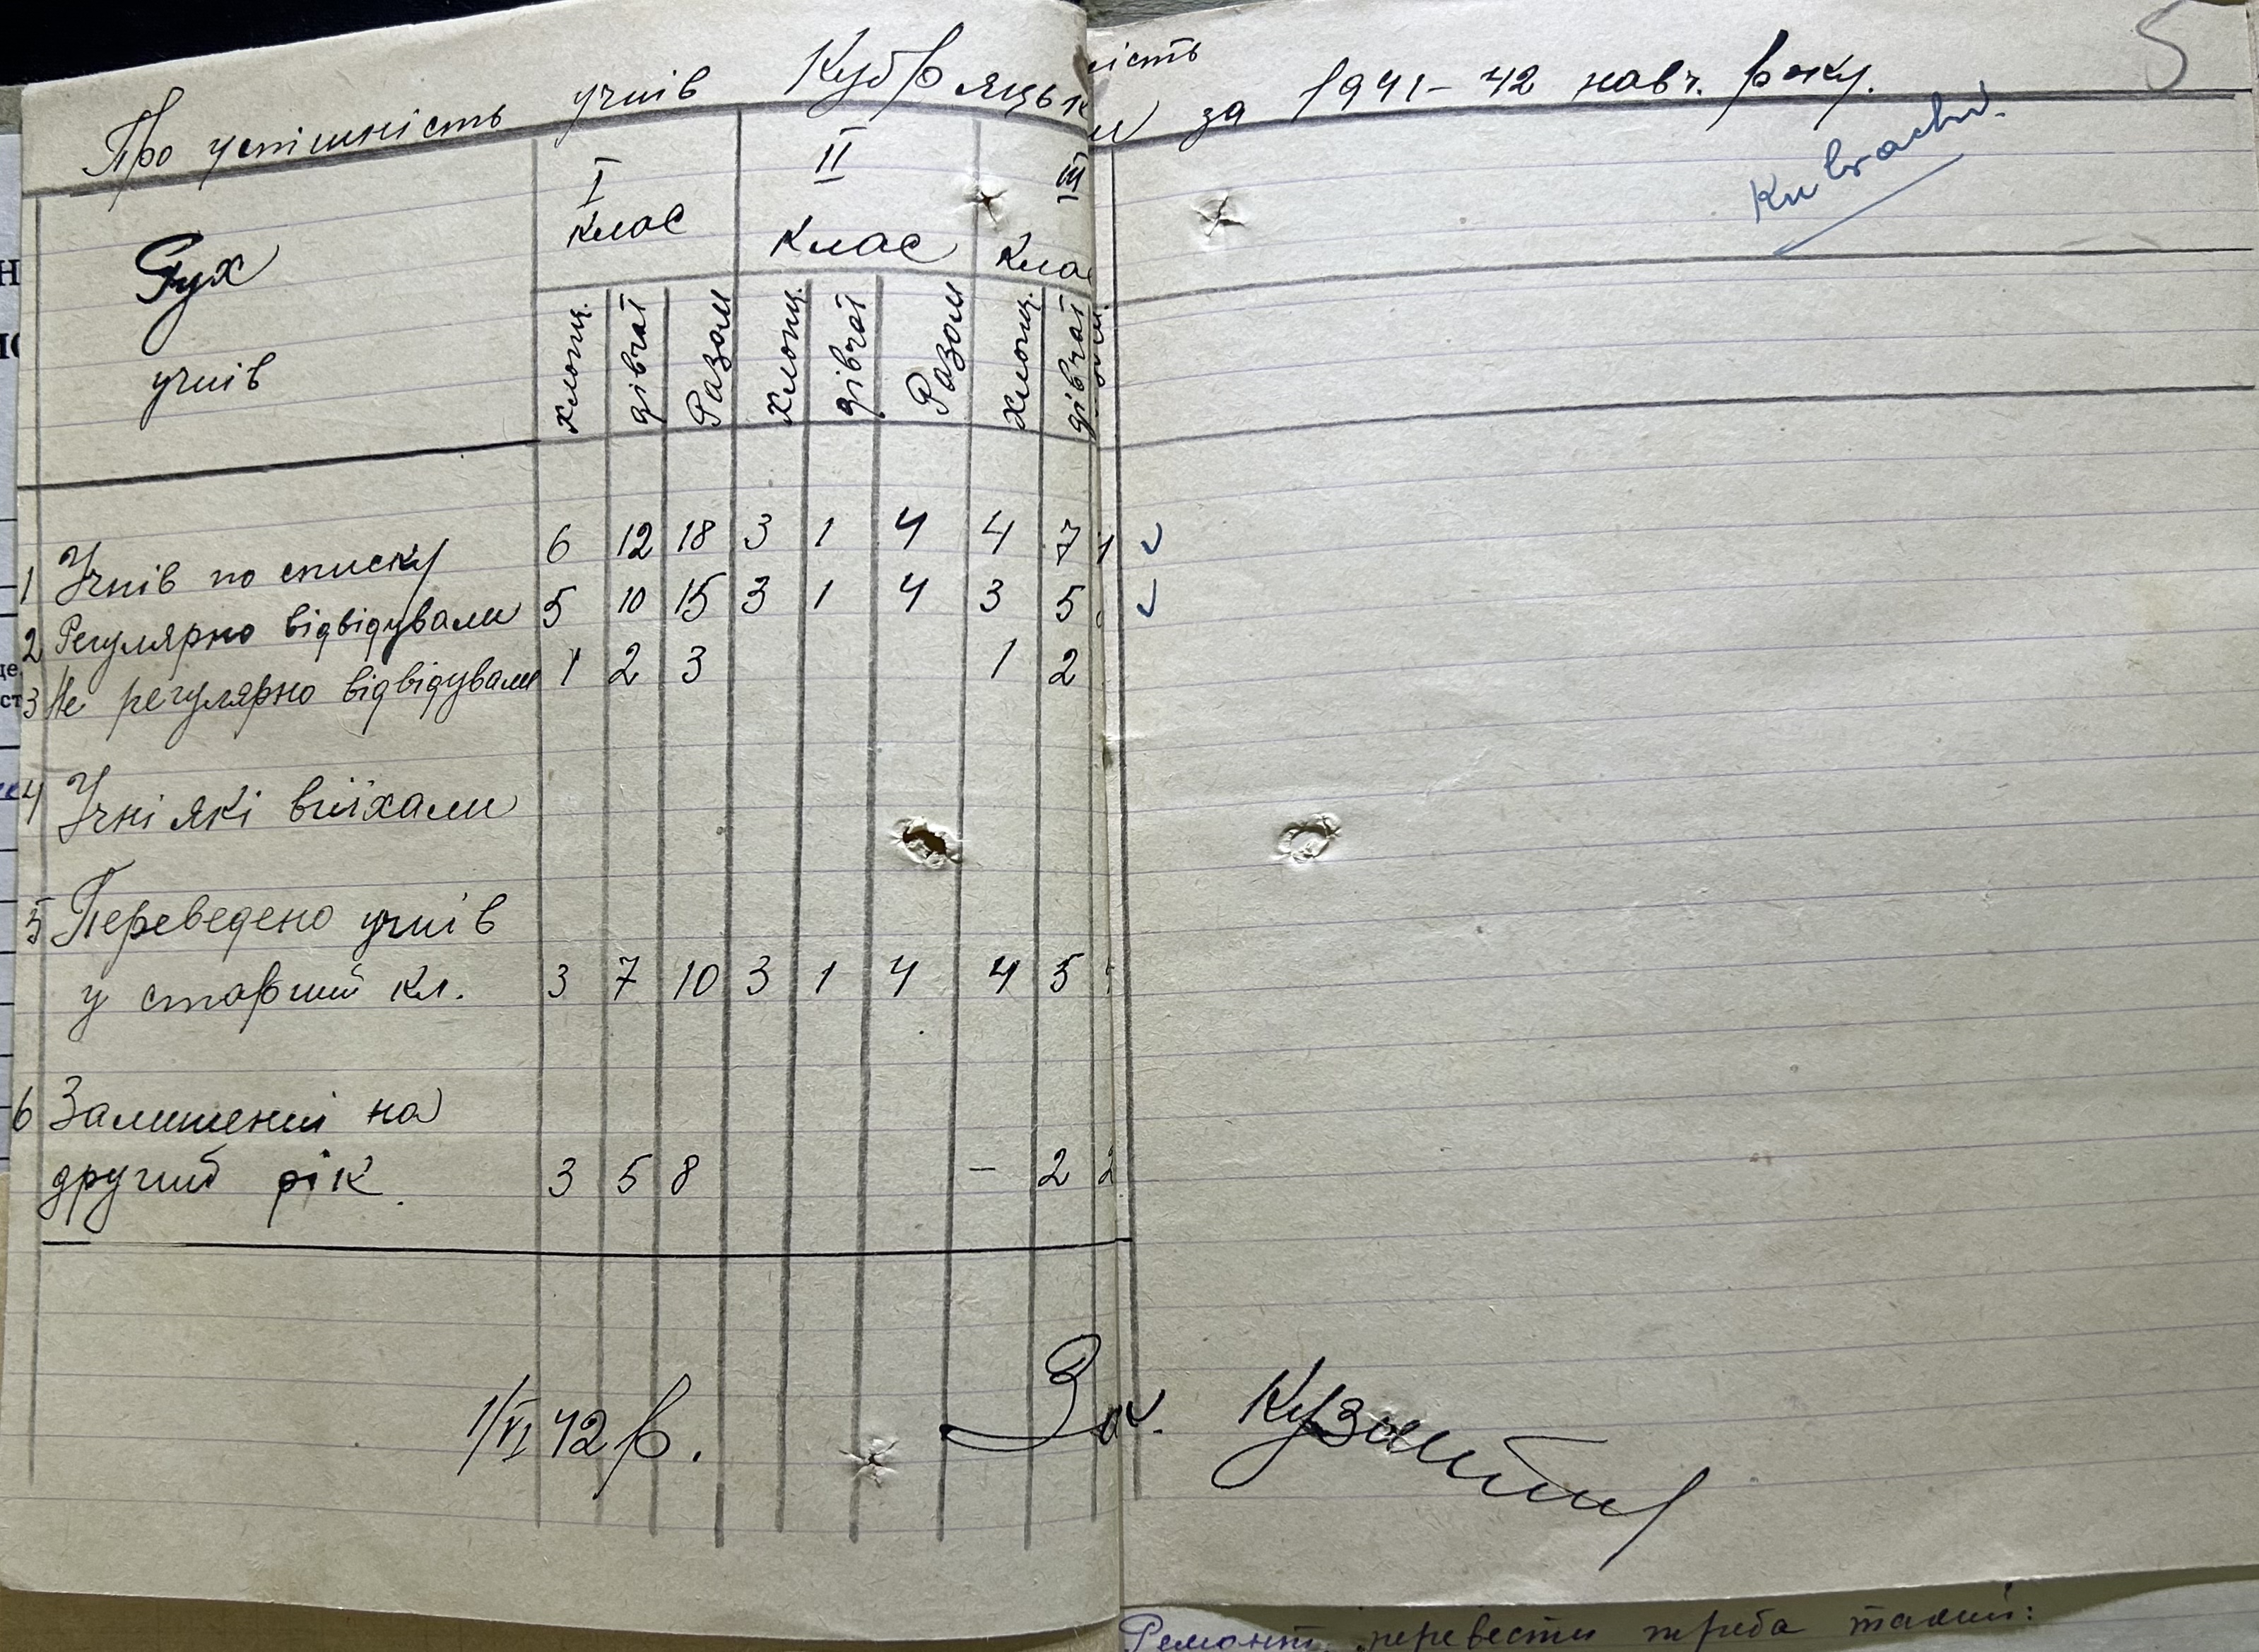 Про успішність учнів Кубряцьк
ість
и за 1941-42 навч. року.
5
Kubrachi.
Рух
учнів
I
клас
II
клас
III
Клас
хлопц. дівчат Разом хлопц. дівчат Разом хлопц. дівчат
1 Учнів по списку 6 12 18 3 1 4 4 7 1
2 Регулярно відвідували 5 10 15 3 1 4 3 5
3 Не регулярно відвідували 1 2 3 1 2
4 Учні які виїхали
5 Переведено учнів
у старший кл. 3 7 10 3 1 4 4 5
6 Залишенні на
другий рік. 3 5 8 – 2 2
1/VI 42 р. Зав.
Ремонт перевести треба такий: